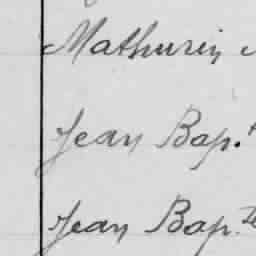 Mathurin
Jean Bap.t
Jean Bap.te